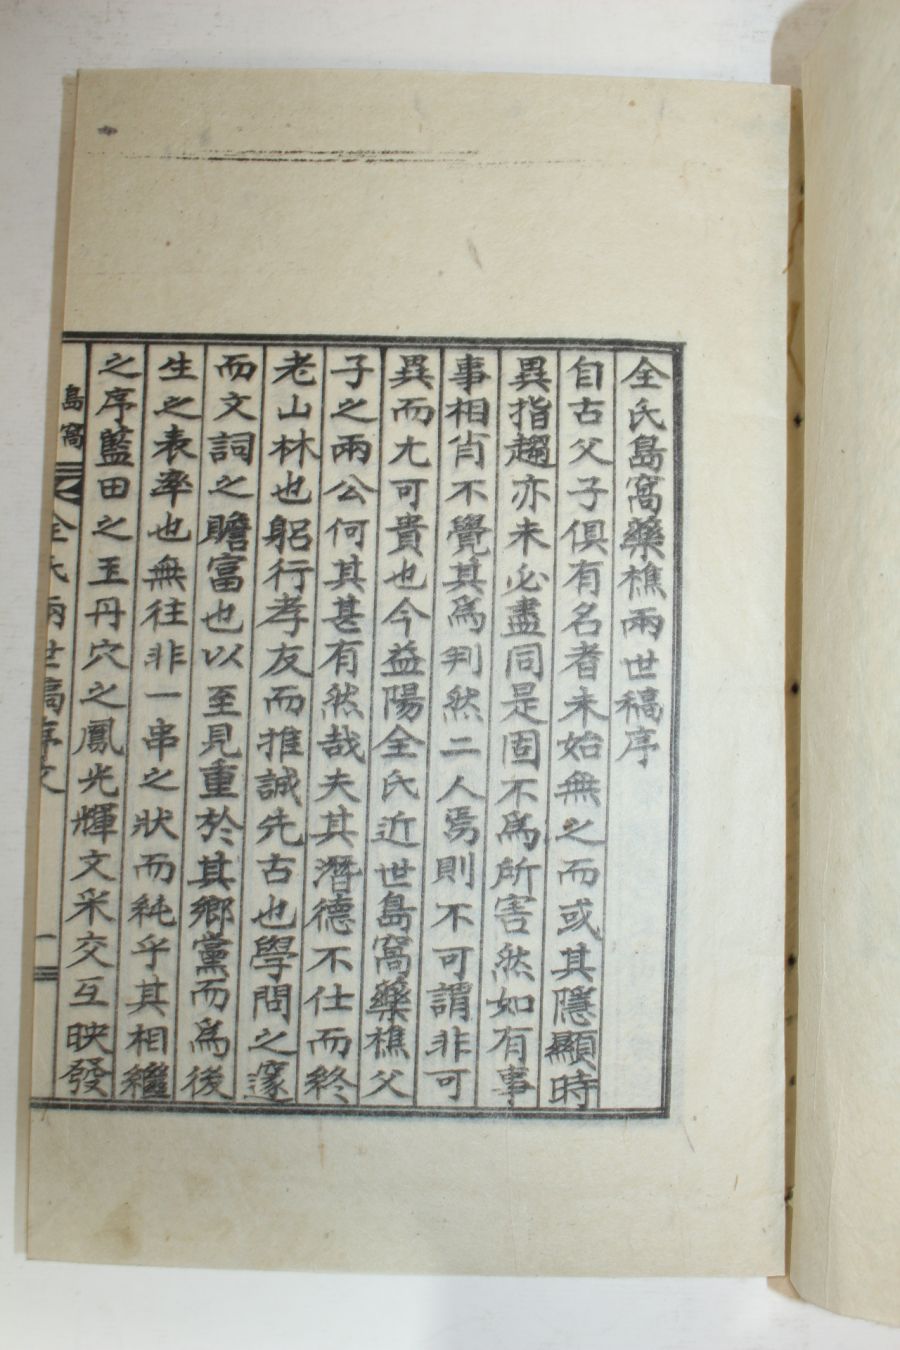 全氏島窩藥樵兩世稿序
自古父子俱有名者未始無之而或其隱顯時
異指趨亦未必盡同是固不爲所害然如有事
事相肖不覺其爲判然二人焉則不可謂非可
異而尤可貴也今益陽全氏近世島窩藥樵父
子之兩公何其甚有然哉夫其潛德不仕而終
老山林也躬行孝友而推誠先古也學問之邃
而文詞之贍富也以至見重於其鄉黨而爲後
生之表率也無往非一串之狀而純乎其相繼
之序藍田之玉丹穴之鳳光輝文采交互映發
島窩
全氏兩世稿序文
一